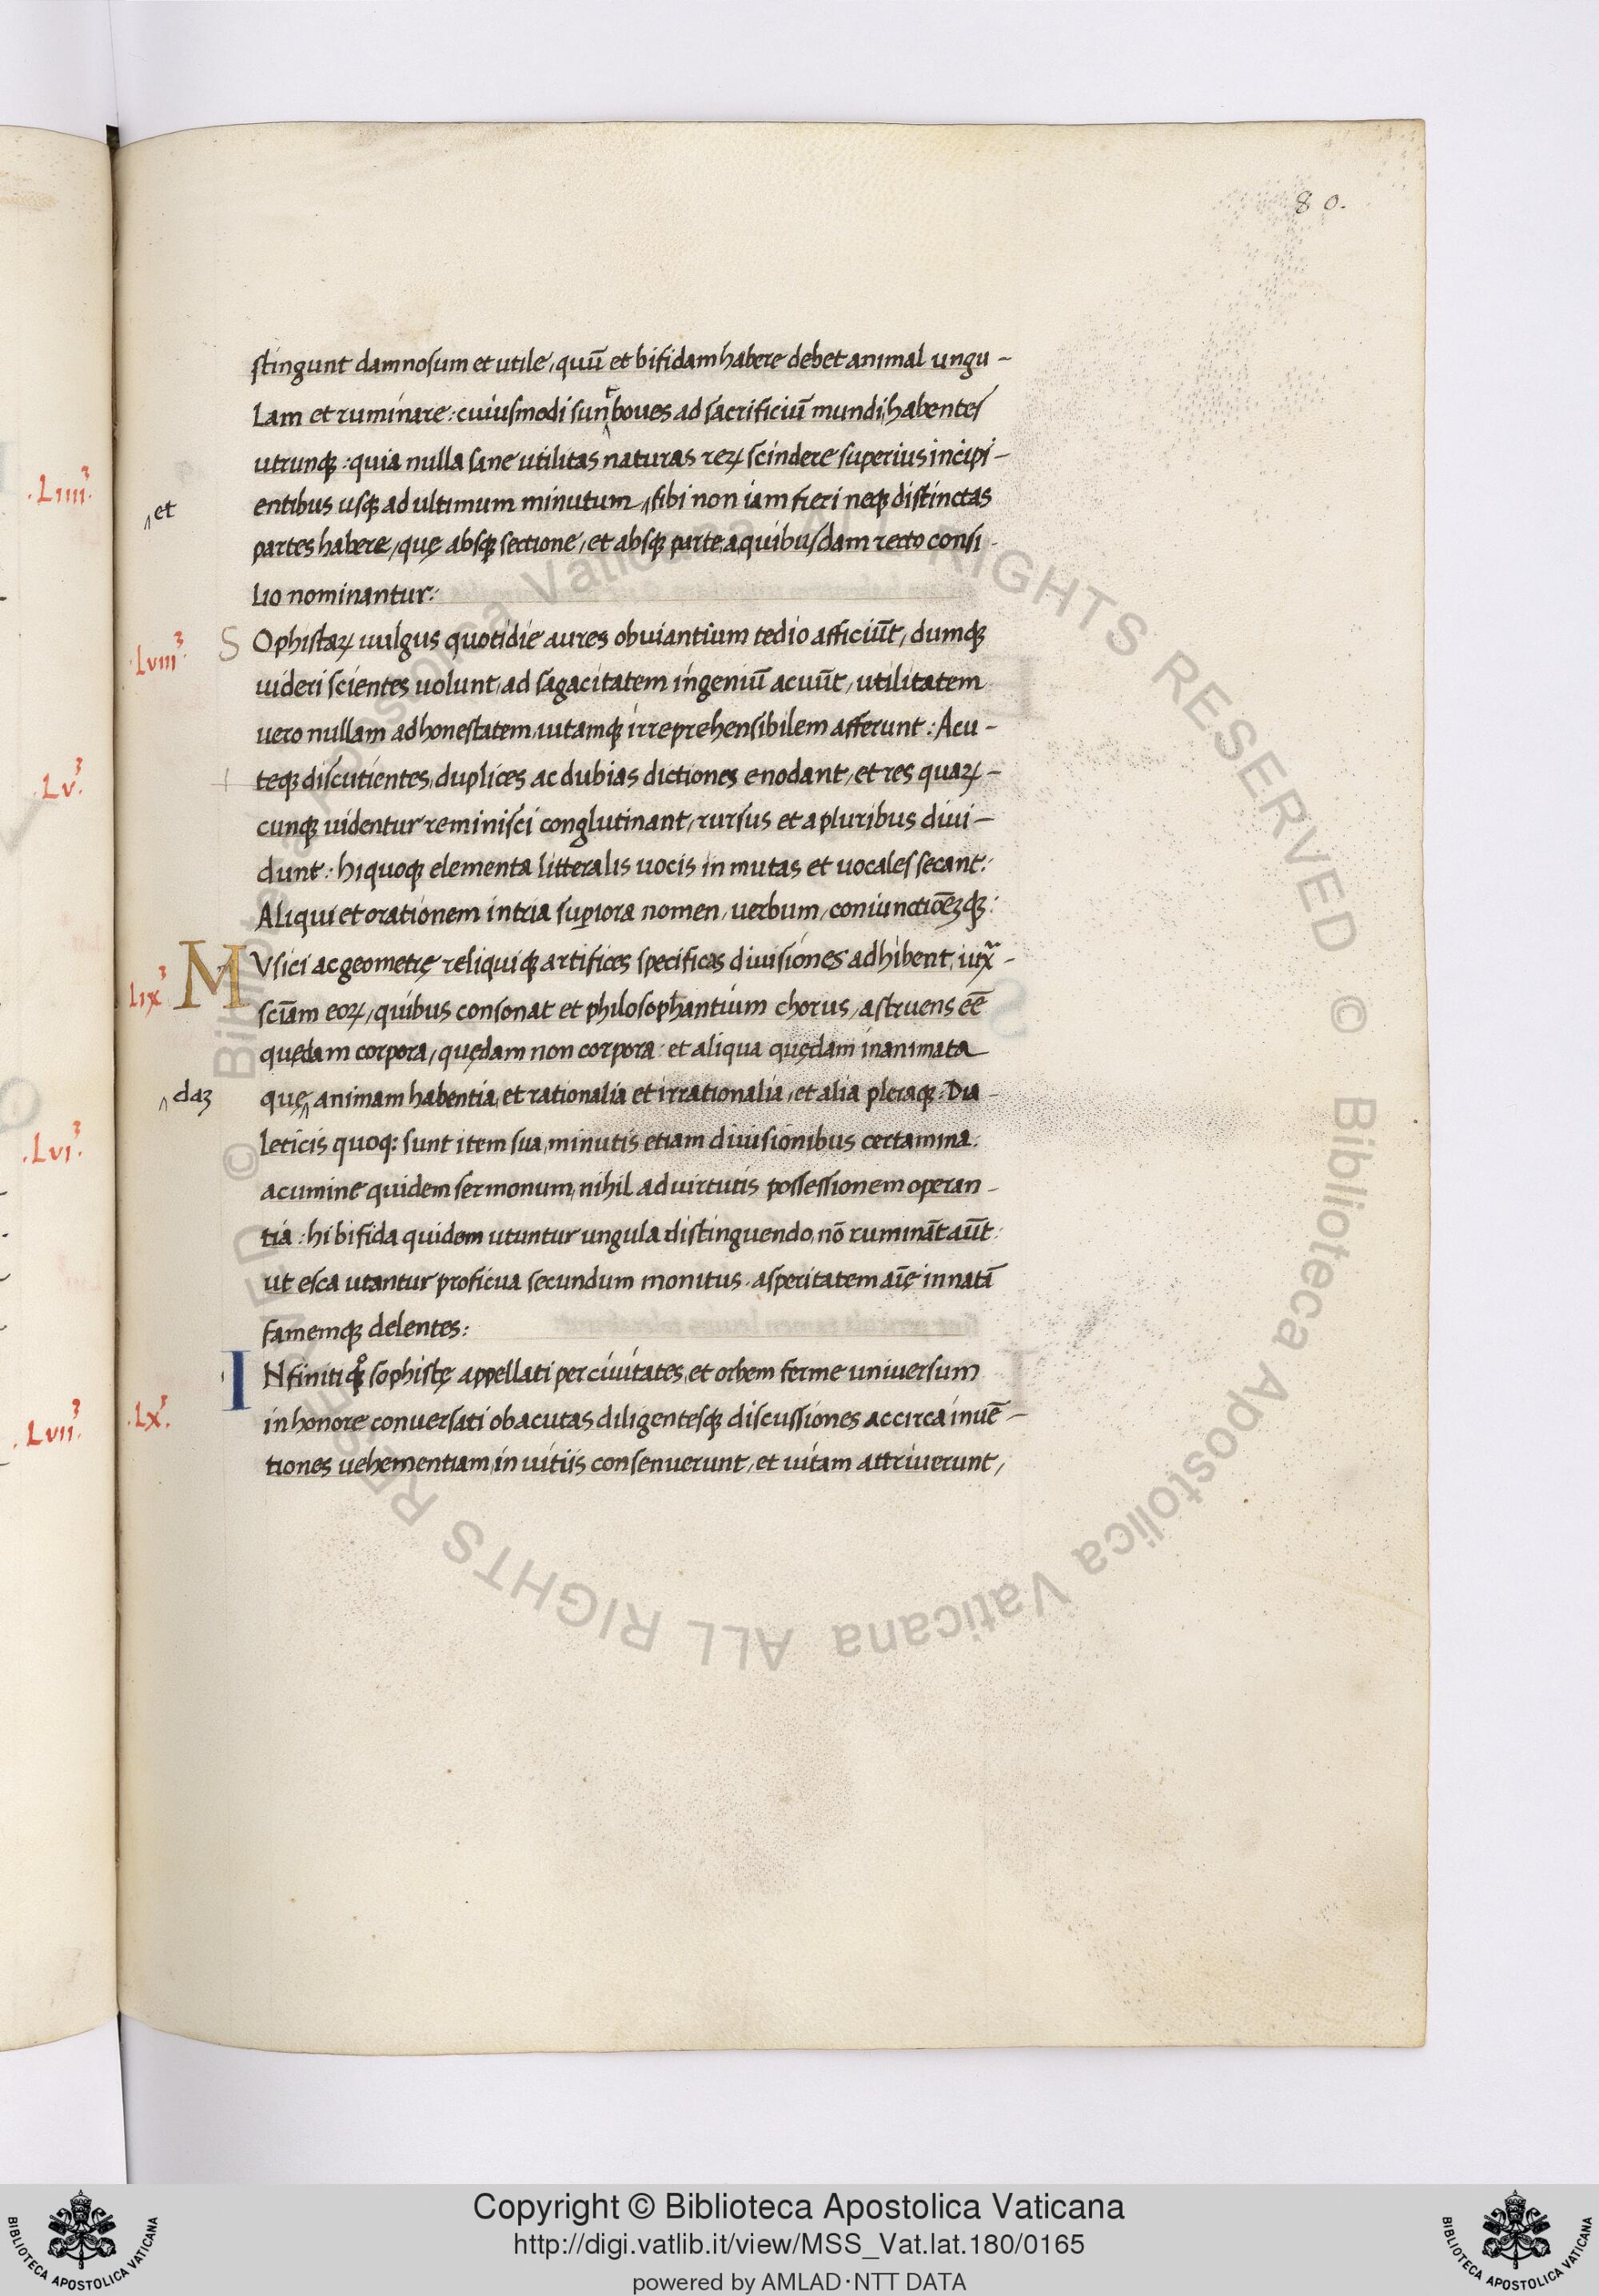 80.
stingunt damnosum et utile, quū et bifidam habere debet animal ungu-
lam et ruminare: cuiusmodi sunt boues ad sacrificiū mundi, habentes
utrunqꝫ: quia nulla sane utilitas naturas reꝝ scindere superius incipi-
.Liiii³.
entibus usqꝫ ad ultimum minutum, sibi non iam fieri neqꝫ distinctas
et
partes habere, quę absqꝫ sectione, et absqꝫ parte, a quibusdam recto consi-
lio nominantur:
.Lviii³.
SOphistaꝝ uulgus quotidie aures obuiantium tedio afficiūt, dumqꝫ
uideri scientes uolunt, ad sagacitatem ingeniū acuūt, utilitatem
uero nullam ad honestatem, uitamqꝫ irreprehensibilem afferunt: Acu-
.Lv³.
teqꝫ discutientes, duplices ac dubias dictiones enodant, et res quaꝝ-
cunqꝫ uidentur reminisci conglutinant, rursus et a pluribus diui-
dunt: hi quoqꝫ elementa litteralis uocis in mutas et uocales secant:
Aliqui et orationem in tria suꝑiora nomen, uerbum, coniunctiōeꝫqꝫ:
Lix³
MVsici ac geometrę reliquiqꝫ artifices specificas diuisiones adhibent, iuxª-
sciam eoꝝ, quibus consonat et philosophantium chorus, astruens eē
quędam corpora, quędam non corpora: et aliqua quędam inanimata
daꝫ
quę animam habentia, et rationalia et irrationalia, et alia pleraqꝫ: Dia-
.Lvi³.
leticis quoq: sunt item sua, minutis etiam diuisionibus certamina.
acumine quidem sermonum, nihil ad uirtutis possessionem operan-
tia: hi bifida quidem utuntur ungula distinguendo, nō ruminānt aūt:
ut esca utantur proficua secundum monitus. asperitatem aīę innatā
famemqꝫ delentes:
INfiniti qꝫº sophistę appellati per ciuitates, et orbem ferme uniuersum
.Lvii³. .Lx³.
in honore conuersati ob acutas diligentesqꝫ discussiones ac circa inuē-
tiones uehementiam, in uitiis consenuerunt, et uitam attriuerunt,
Copyright © Biblioteca Apostolica Vaticana
http://digi.vatlib.it/view/MSS_Vat.lat.180/0165
powered by AMLAD·NTT DATA
BIBLIOTECA APOSTOLICA VATICANA
BIBLIOTECA APOSTOLICA VATICANA
© Biblioteca Apostolica Vaticana ALL RIGHTS RESERVED © Biblioteca Apostolica Vaticana ALL RIGHTS RESERVED